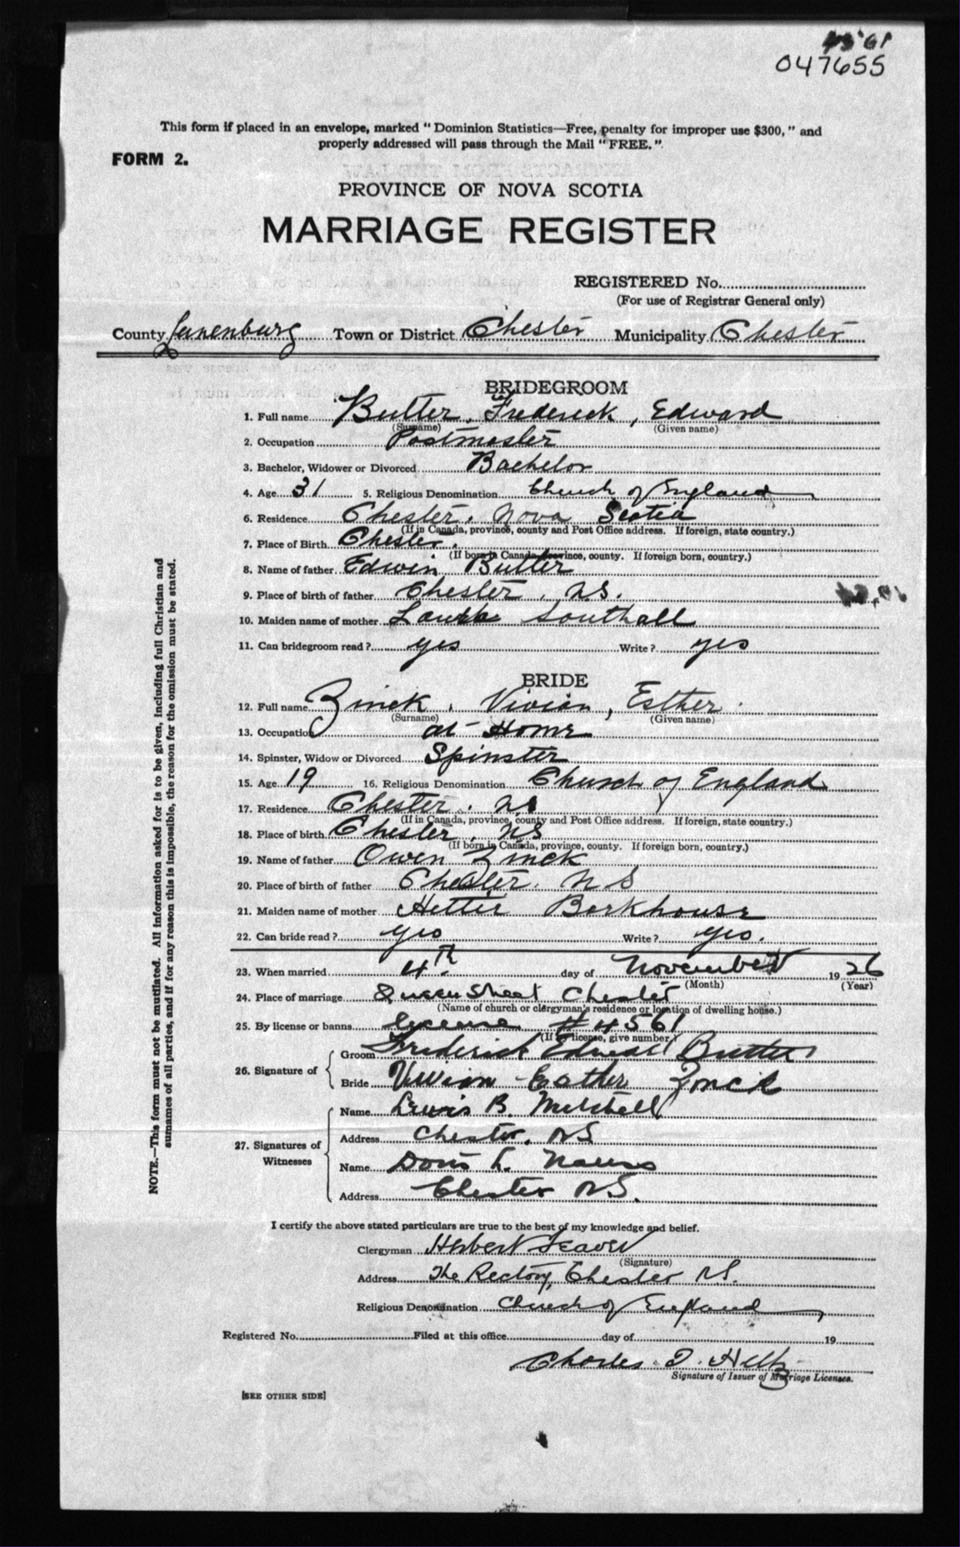 047655
This form if placed in an envelope, marked "Dominion Statistics—Free, penalty for improper use $300," and
properly addressed will pass through the Mail "FREE."
FORM 2.
PROVINCE OF NOVA SCOTIA
MARRIAGE REGISTER
REGISTERED No.
(For use of Registrar General only)
County Lunenburg Town or District Chester Municipality Chester
BRIDEGROOM
1. Full name Butler, Frederick, Edward
(Surname) (Given name)
2. Occupation Postmaster
3. Bachelor, Widower or Divorced Bachelor
4. Age 31 5. Religious Denomination Church of England
6. Residence Chester, Nova Scotia
(If in Canada, province, county and Post Office address. If foreign, state country.)
7. Place of Birth Chester.
(If born in Canada, province, county. If foreign born, country.)
8. Name of father Edwin Butler
9. Place of birth of father Chester, N.S.
10. Maiden name of mother Southall
11. Can bridegroom read? yes Write? yes
BRIDE
12. Full name Zinck, Vivian, Esther
(Surname) (Given name)
13. Occupation at Home
14. Spinster, Widow or Divorced Spinster
15. Age 19 16. Religious Denomination Church of England
17. Residence Chester. NS
(If in Canada, province, county and Post Office address. If foreign, state country.)
18. Place of birth Chester, NS
(If born in Canada, province, county. If foreign born, country.)
19. Name of father Owen Zinck
20. Place of birth of father Chester. NS
21. Maiden name of mother Hettie Barkhouse
22. Can bride read? yes Write? yes.
23. When married 4th day of November 1926
(Month) (Year)
24. Place of marriage Queen Street Chester
(Name of church or clergyman's residence or location of dwelling house.)
25. By license or banns License #4561
(If by license, give number)
26. Signature of
Groom Frederick Edward Butler
Bride Vivian Esther Zinck
27. Signatures of Witnesses
Name Lewis B. Mitchell
Address Chester, NS
Name Doris L. Nauss
Address Chester NS.
I certify the above stated particulars are true to the best of my knowledge and belief.
Clergyman Herbert Leaver
(Signature)
Address The Rectory, Chester NS.
Religious Denomination Church of England
Registered No. Filed at this office day of 19
Charles D. Hiltz
Signature of Issuer of Marriage Licenses.
[SEE OTHER SIDE]
NOTE.—This form must not be mutilated. All information asked for is to be given, including full Christian and
surnames of all parties, and if for any reason this is impossible, the reason for the omission must be stated.